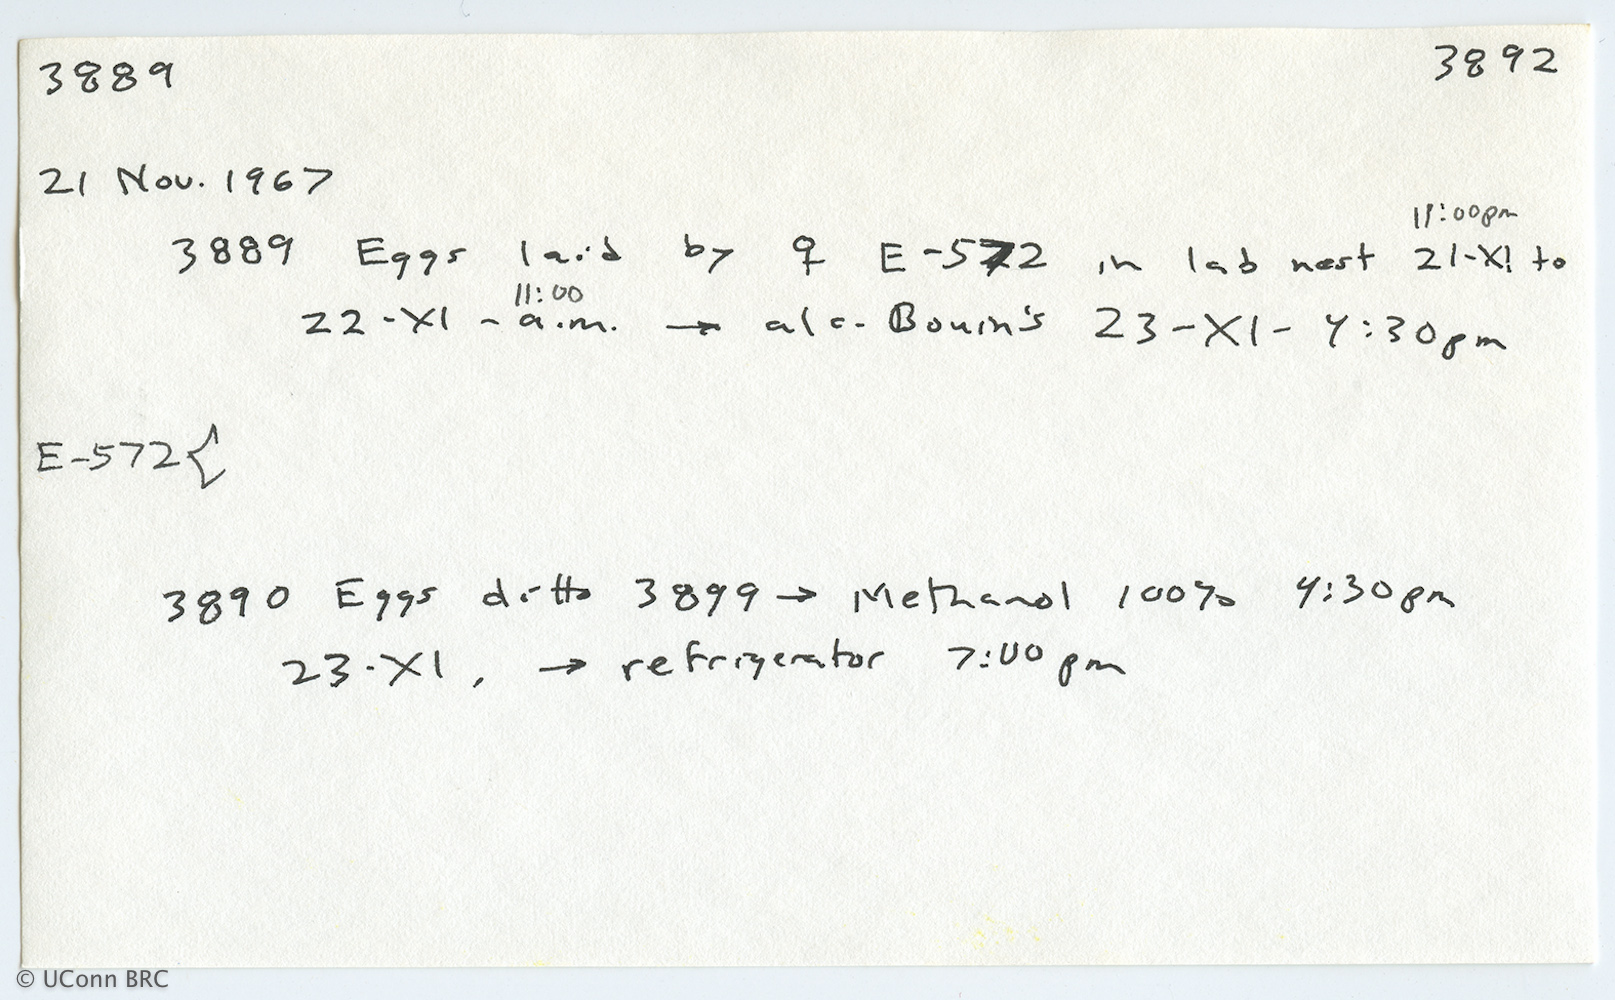 3889 3892
21 Nov. 1967
11:00pm
3889 Eggs laid by ♀ E-572 in lab nest 21-XI to
11:00
22-XI - a.m. → alc. Bouin's 23-XI- 4:30pm
E-572{
3890 Eggs ditto 3899 → Methanol 100% 4:30pm
23-XI, → refrigerator 7:00 pm
© UConn BRC